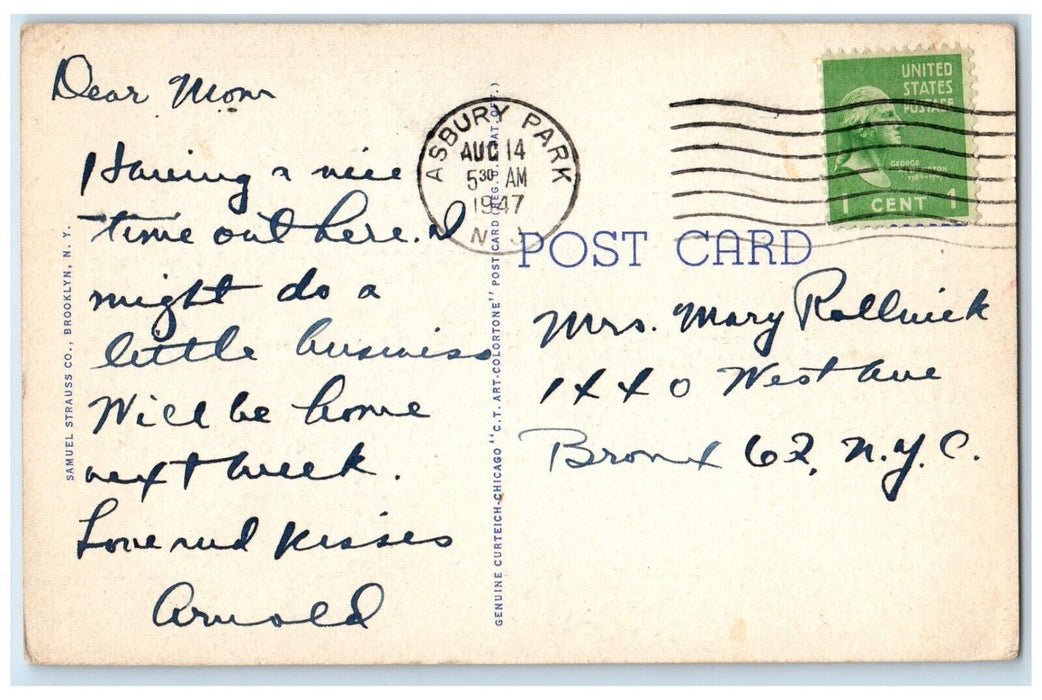 Dear Mom
Having a nice
time out here. I
might do a
little business
Will be home
next week.
Love and Kisses
Arnold
SAMUEL STRAUSS CO., BROOKLYN, N. Y.
GENUINE CURTEICH-CHICAGO "C.T. ART-COLORTONE" POST CARD (REG. U.S. PAT. OFF.)
ASBURY PARK
AUG 14
5 30 AM
1947
N. J.
UNITED
STATES
POSTAGE
GEORGE
WASHINGTON
1 CENT 1
POST CARD
Mrs. Mary
West Ave
Bronx 62, N.Y.C.